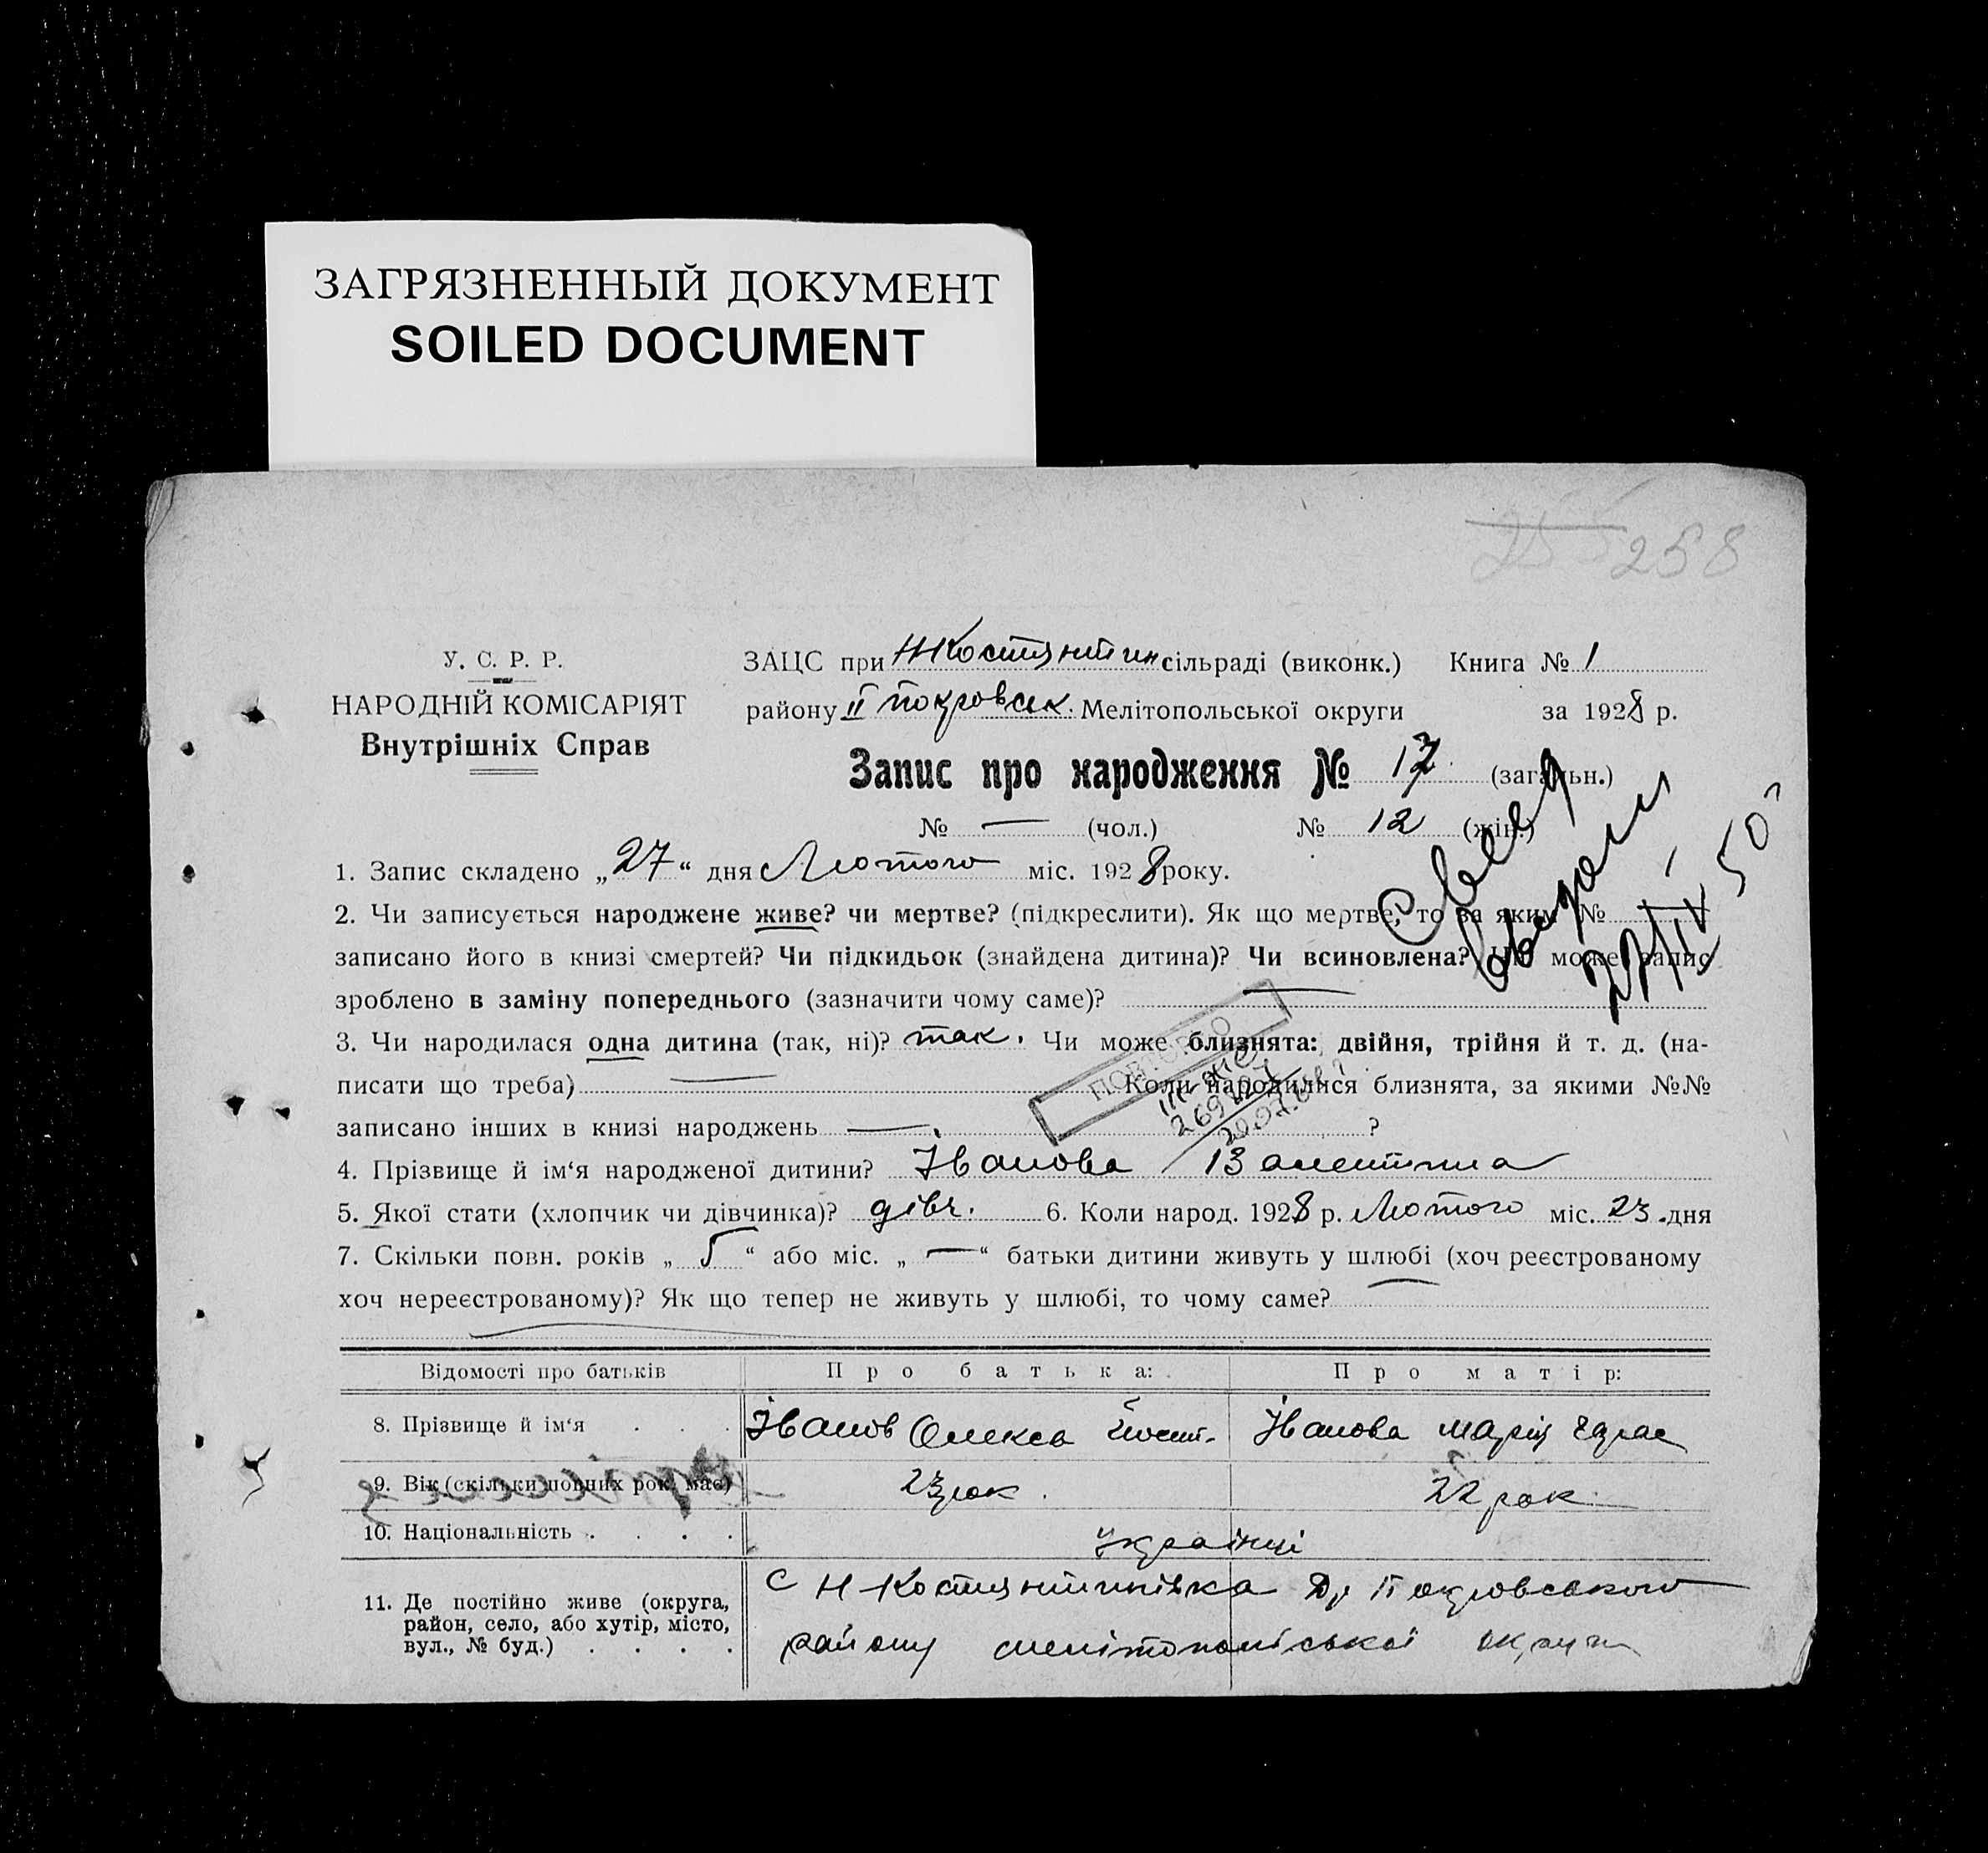 ЗАГРЯЗНЕННЫЙ ДОКУМЕНТ
SOILED DOCUMENT
258
У. С. Р. Р.
НАРОДНІЙ КОМІСАРІЯТ
Внутрішніх Справ
ЗАЦС при Н Костянтин сільраді (виконк.) Книга № 1
району II Покровськ. Мелітопольської округи за 1928 р.
Запис про народження № 17 (загальн.)
№ — (чол.) № 12 (жін.)
1. Запис складено „27“ дня Лютого міс. 1928 року.
2. Чи записується народжене живе? чи мертве? (підкреслити). Як що мертве, то за яким №
записано його в книзі смертей? Чи підкидьок (знайдена дитина)? Чи всиновлена? Чи може запис
зроблено в заміну попереднього (зазначити чому саме)? —
3. Чи народилася одна дитина (так, ні)? так. Чи може близнята: двійня, трійня й т. д. (на-
писати що треба) — Коли народилися близнята, за якими №№
записано інших в книзі народжень — ?
ПОВТОРНО
4. Прізвище й ім‘я народженої дитини? Іванова Валентина
5. Якої стати (хлопчик чи дівчинка)? дівч. 6. Коли народ. 1928 р. Лютого міс. 23 дня
7. Скільки повн. років „5“ або міс. „—“ батьки дитини живуть у шлюбі (хоч реєстрованому
хоч нереєстрованому)? Як що тепер не живуть у шлюбі, то чому саме? —
Відомості про батьків Про батька: Про матір:
8. Прізвище й ім‘я Іванов Олекса Іванова Марія
9. Вік (скільки повних рок. має) 23 рок. 22 рок.
10. Національність українці
11. Де постійно живе (округа, район, село, або хутір, місто, вул., № буд.)
С Н-Костянтинівка Др Покровського
району мелітопольської округи